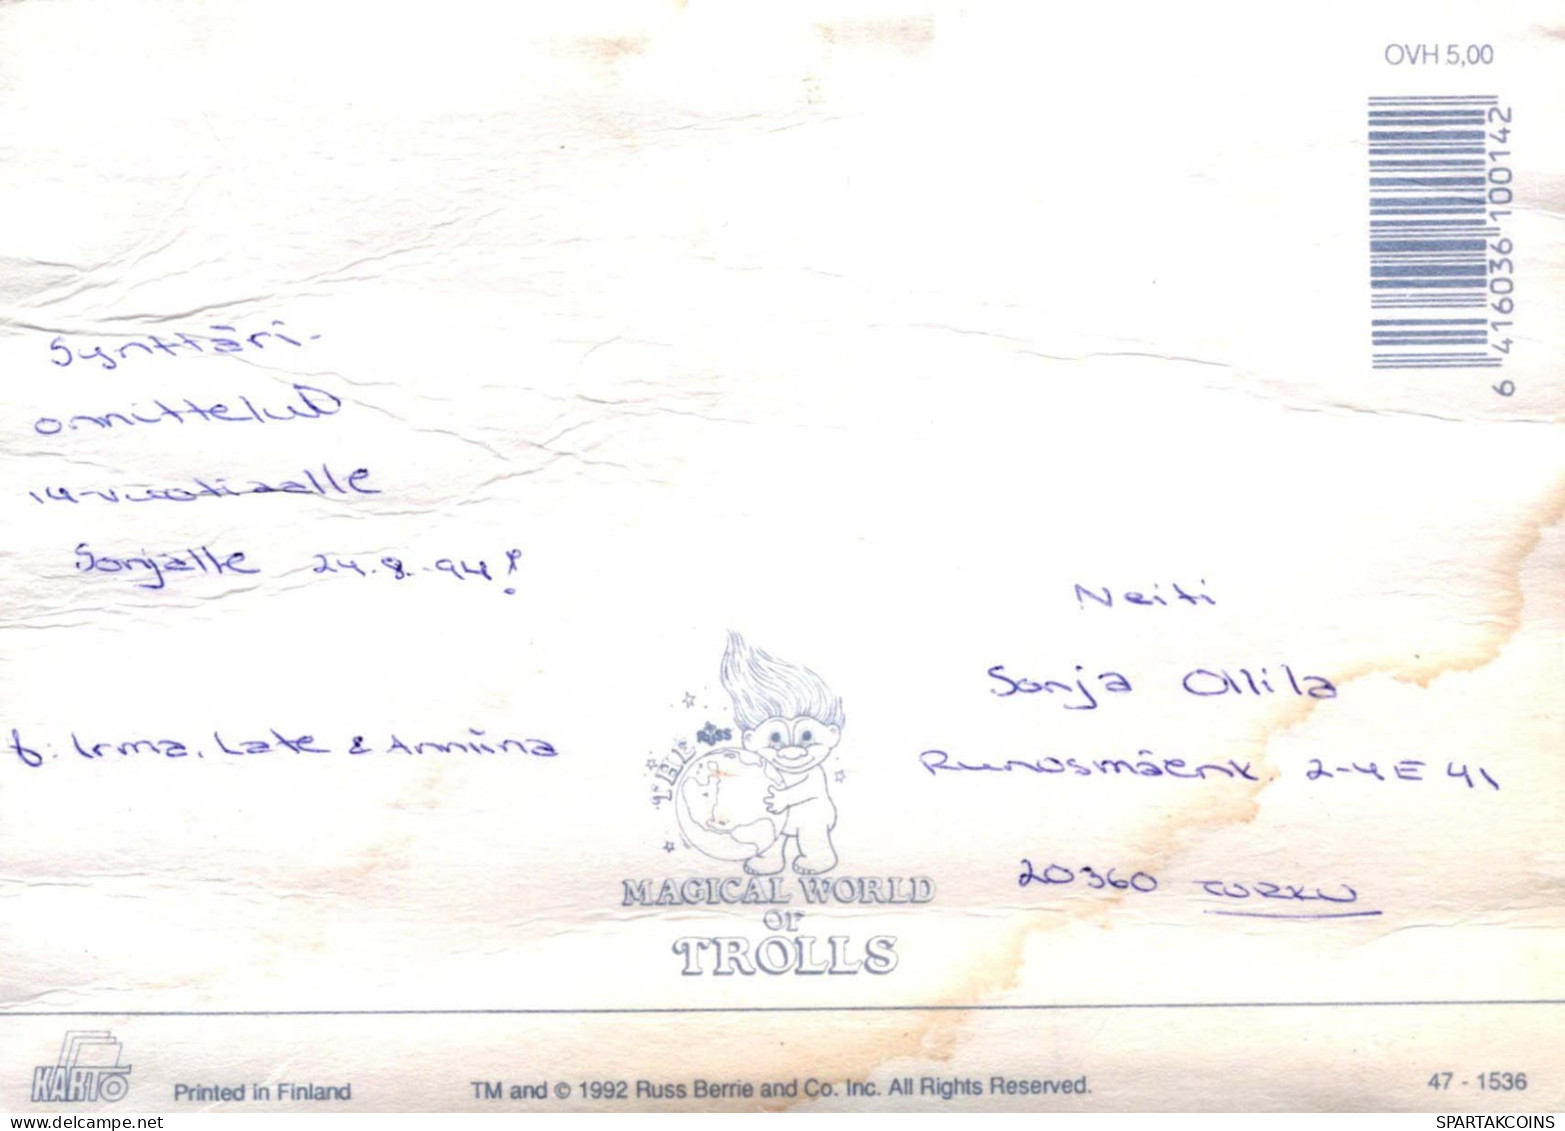 OVH 5,00
6 416036 100142
Synttäri-
onnittelut
14-vuotiaalle
Sonjalle 24.8.-94!
t: Irma, Late & Anniina
Neiti
Sonja Ollila
Runosmäenk. 2-4 E 41
20360 TURKU
THE RUSS
MAGICAL WORLD
OF
TROLLS
KARTO
Printed in Finland
TM and © 1992 Russ Berrie and Co. Inc. All Rights Reserved.
47 - 1536
SPARTAKCOINS